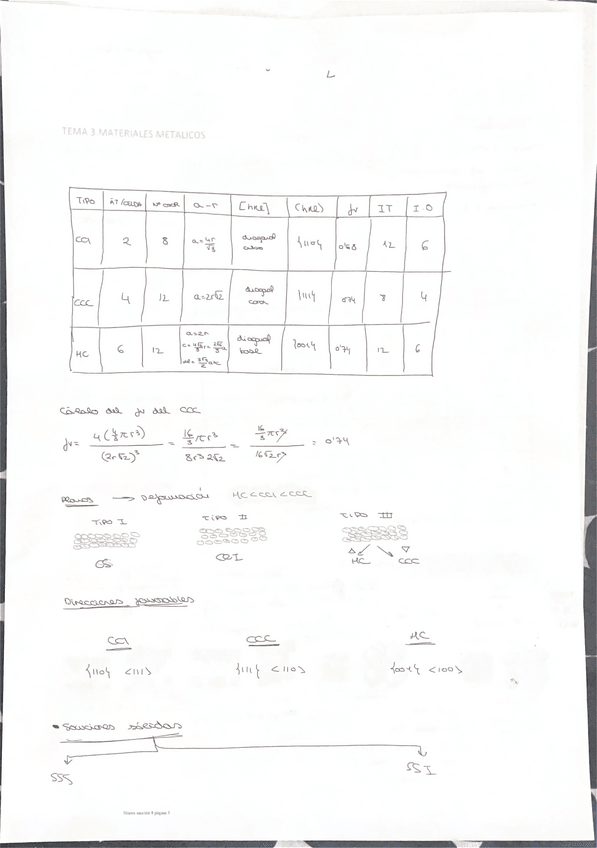 TEMA 3 MATERIALES METALICOS
TIPO ÁT/CELDA Nº COOR a-r [hkl] (hkl) fv IT I.O
CCI 2 8 a=4r/√3 diagonal cubo {110} 0'68 12 6
CCC 4 12 a=2r√2 diagonal cara {111} 0'74 8 4
HC 6 12 a=2r diagonal base {001} 0'74 12 6
Cálculo del fv del CCC
fv = 4(4/3 πr³) / (2r√2)³ = 16/3 πr³ / 8r³2√2 = 16/3 πr³ / 16√2r³ = 0'74
Planos → Deformación HC<CCI<CCC
TIPO I TIPO II TIPO III
CS CCI HC CCC
Direcciones favorables
CCI CCC HC
{110} <111> {111} <110> {001} <100>
• Soluciones sólidas
SSS SSI